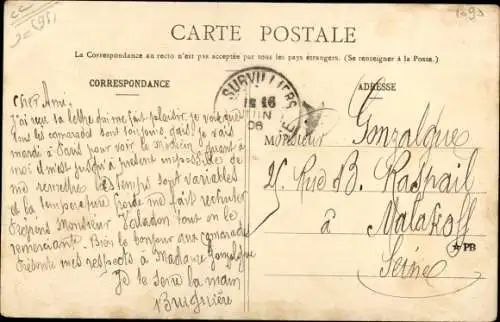 CARTE POSTALE
La Correspondance au recto n'est pas acceptée par tous les pays étrangers. (Se renseigner à la Poste.)
CORRESPONDANCE
ADRESSE
SURVILLIERS
16
JUIN
06
Cher Ami,
J'ai reçu la lettre qui me fait plaisir, je vois que
tous les camarades sont toujours
mardi à Paris pour voir le médecin quant à
moi il m'est jusqu'à présent impossible de
me remettre les temps sont variables
et la température froide me fait rechuter
Monsieur Valadon tout en le
remerciant. Bien le bonjour aux camarades
mes respects à Madame Gonzalque
Je te serre la main
Brugière
Monsieur Gonzalque
25, Rue B. Raspail
à Malakoff
Seine
PB